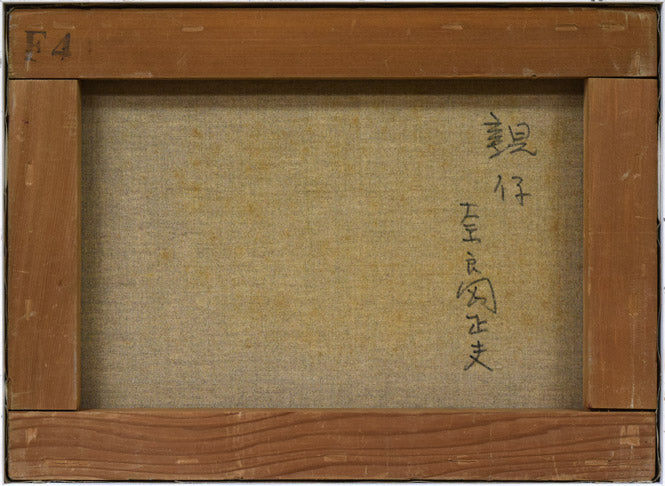 F4
親仔
奈良岡正夫